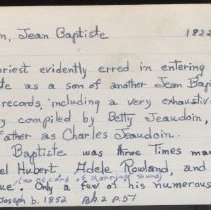 n, Jean Baptiste 1822
priest evidently erred in entering
te as a son of another Jean Bap
records including a very exhaustiv
y compiled by Betty Jeaudoin,
father as Charles Jeaudoin.
Baptiste was three Times mar
el Hubert, Adele Rowland, and
(no record of marriage found)
ue. Only a few of his numerous
Joseph b. 1852 Bk 2 P.51